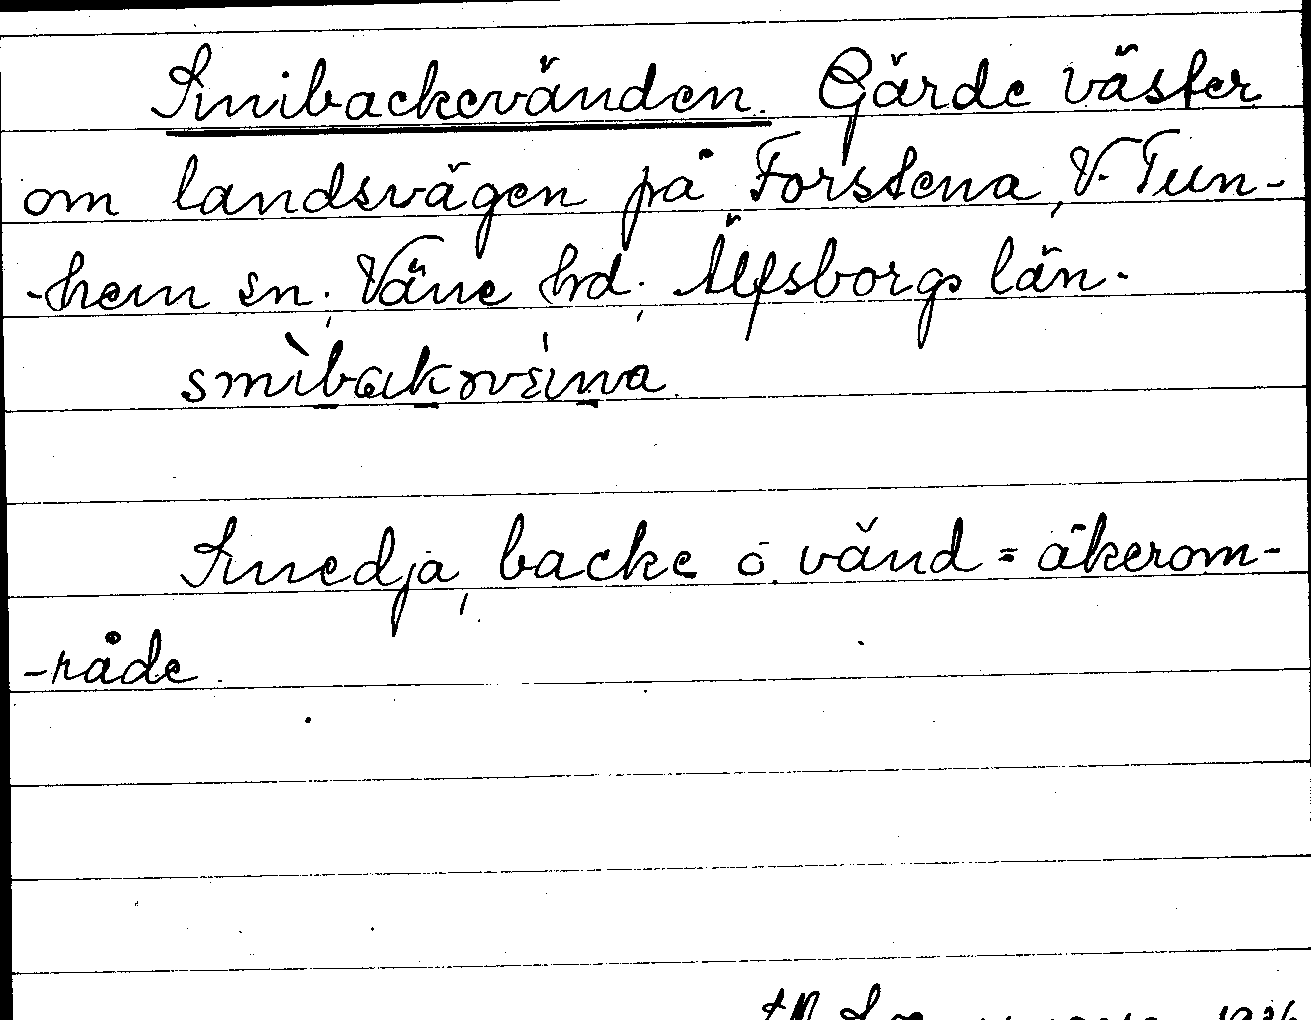 Smibackevänden. Gärde väster
om landsvägen på Forstena, V. Tun-
-hem sn, Väne hd, Älfsborgs län.
Smedja, backe o. vänd = åkerom-
-råde.